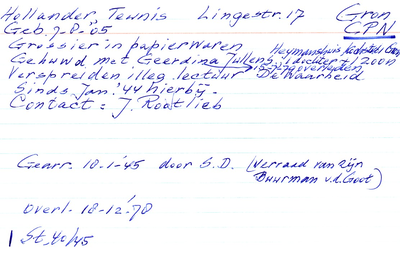 Hollander, Teunis Lingestr. 17 Gron
CPN
Geb. 7-8-'05
Grossier in papierwaren
Gehuwd met Geerdina Jullens, 1 dochter + 1 zoon
Heymanshuis
is nog overleden
Verspreiden illeg. lectuur De Waarheid
Sinds Jan. '44 hierbij.
Contact: J. Rootlieb
Gearr. 10-1-'45 door S.D. (Verraad van zijn
Buurman v.d. Goot)
Overl. 18-12-'70
St. 40/45